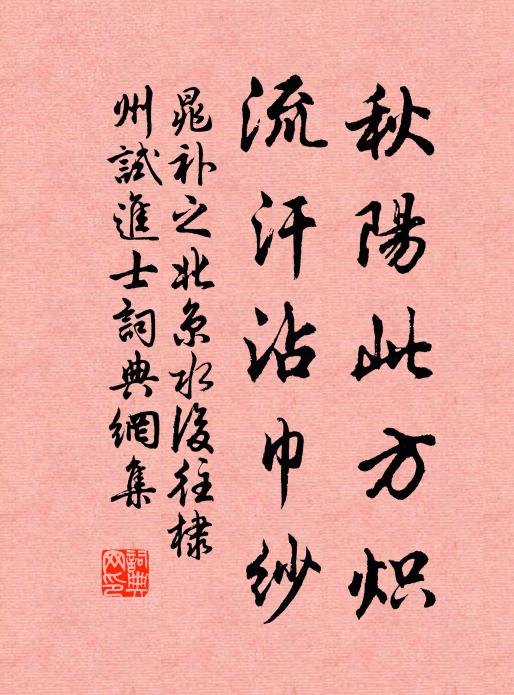 秋陽此方炽
流汗沾巾紗
晁补之北京水後往棣
州試進士詞典網集
詞典
网印